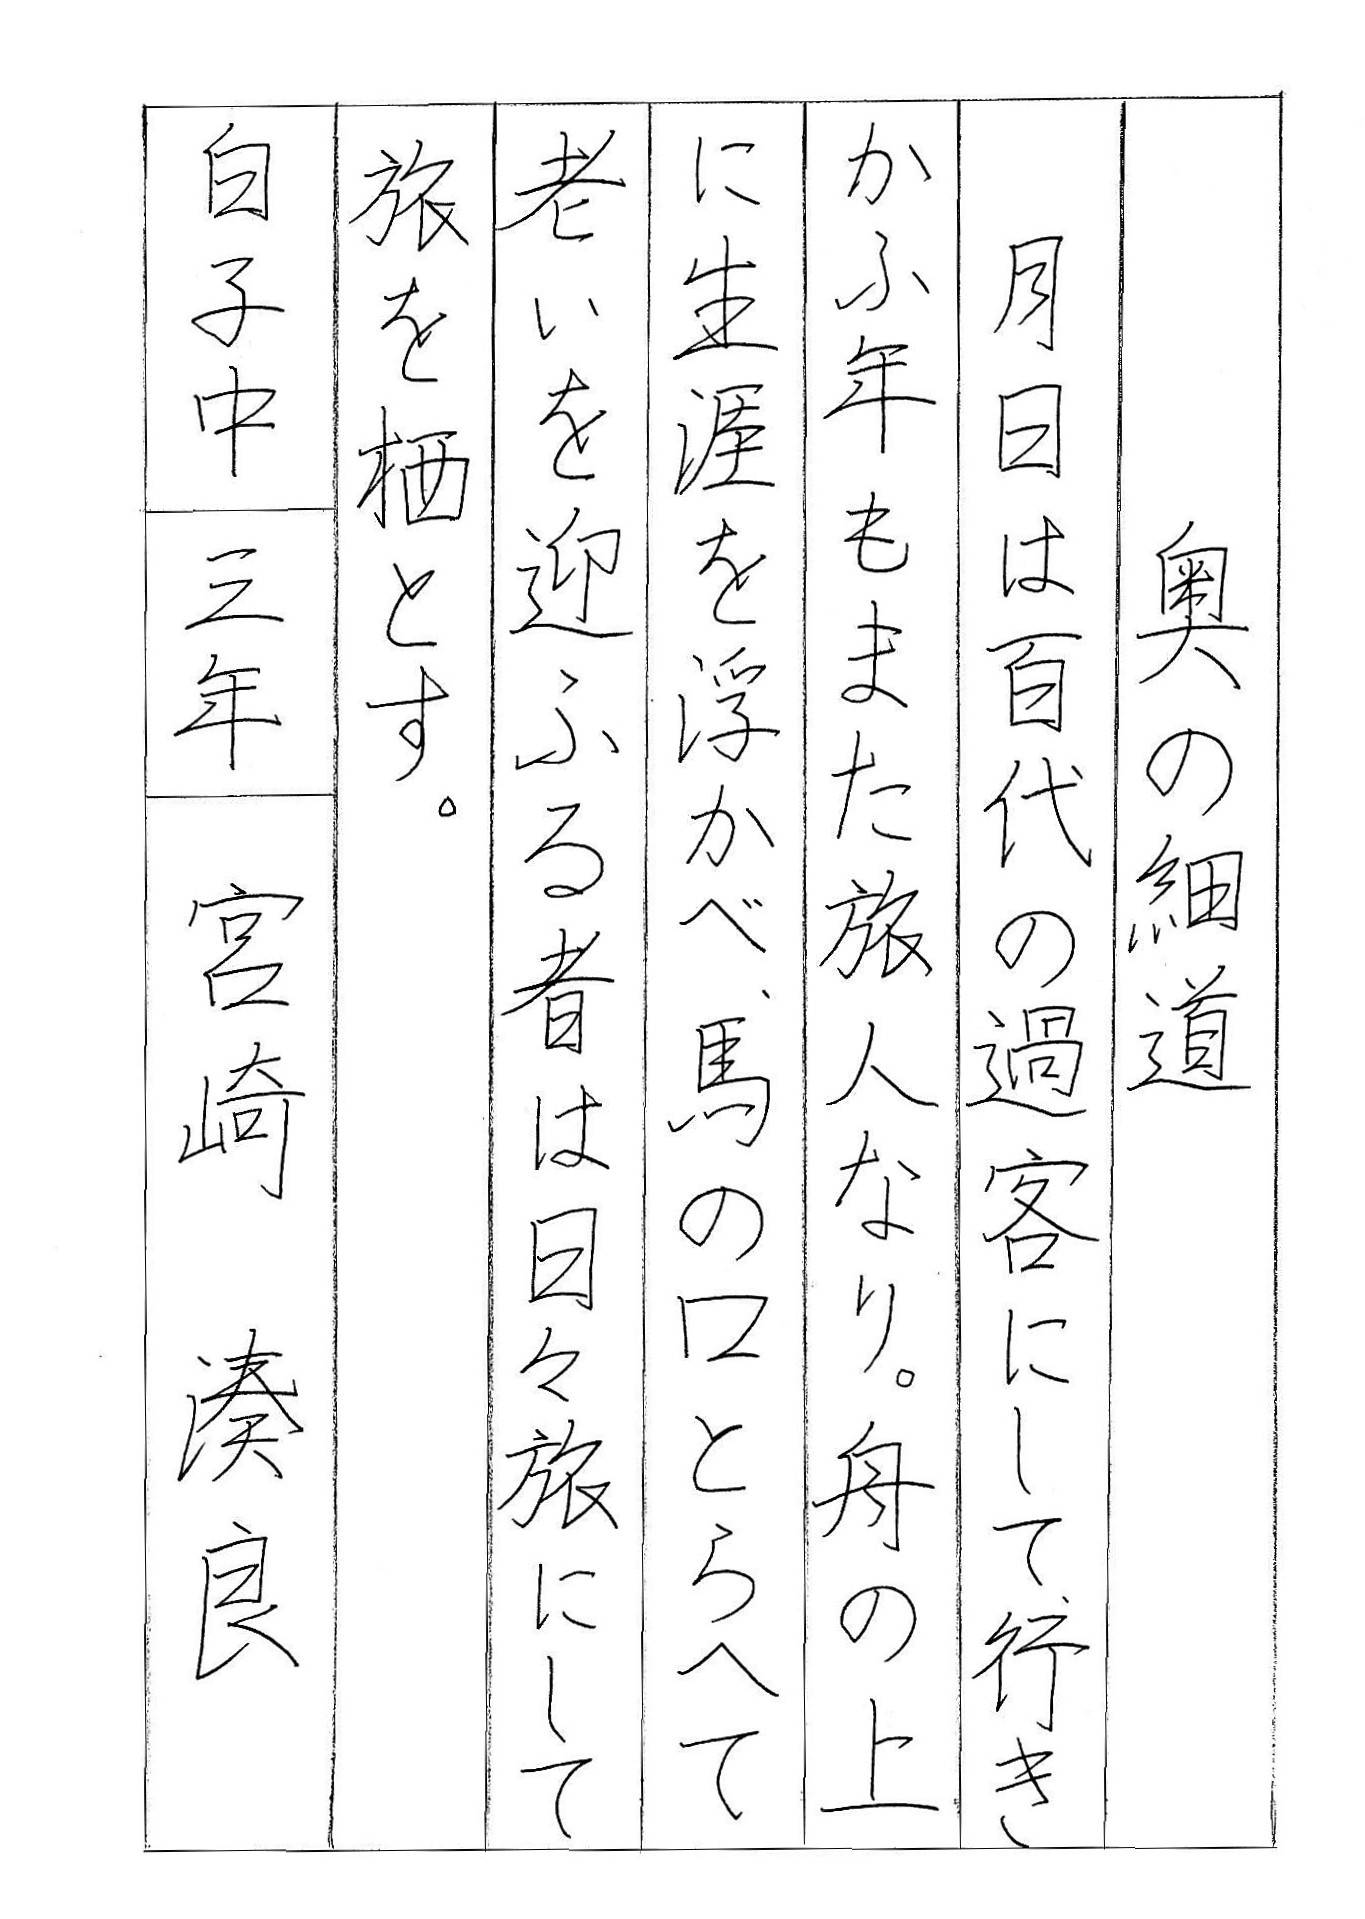 奥の細道
月日は百代の過客にして、行き
かふ年もまた旅人なり。舟の上
に生涯を浮かべ、馬の口とらへて
老いを迎ふる者は日々旅にして
旅を栖とす。
白子中 三年 宮崎 湊良